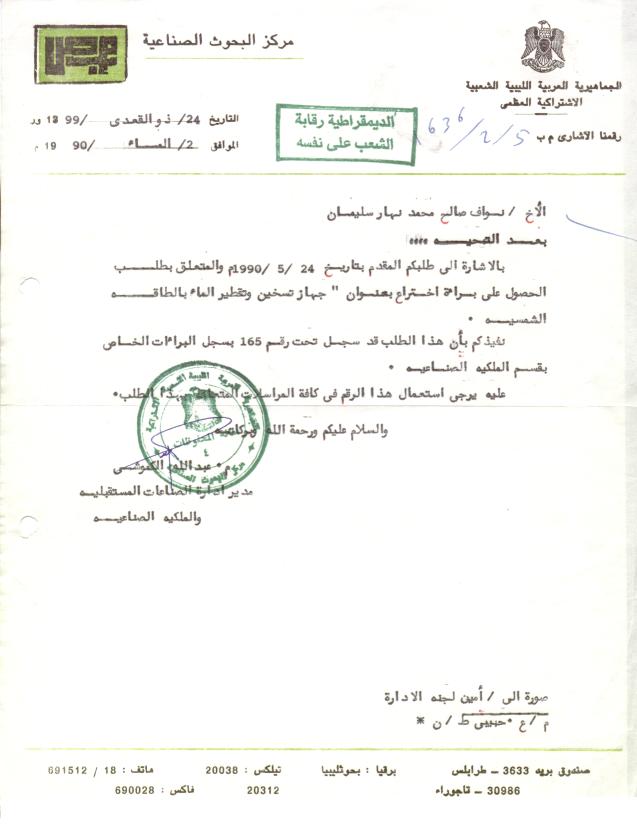 مركز البحوث الصناعية
الجماهيرية العربية الليبية الشعبية
الاشتراكية العظمى
رقمنا الاشارى م ب 5/2/636
الديمقراطية رقابة
الشعب على نفسه
التاريخ 24/ ذو القعدى /99 13 ور
الموافق 2/ /90 19 م
الأخ / نواف صالح محمد نهار سليمان
بعد التحيه ،،،،
بالاشارة الى طلبكم المقدم بتاريخ 24 /5 /1990م والمتعلق بطلب
الحصول على براءة اختراع بعنوان " جهاز تسخين وتقطير الماء بالطاقه
الشمسيه .
نفيذكم بأن هذا الطلب قد سجل تحت رقم 165 بسجل البراءات الخاص
بقسم الملكيه الصناعيه .
عليه يرجى استعمال هذا الرقم فى كافة المراسلات المتعلقة بهذا الطلب.
والسلام عليكم ورحمة الله وبركاته
م. عبدالله الكنوشى
مدير ادارة الصناعات المستقبليه
والملكيه الصناعيه
صورة الى / أمين لجنه الادارة
م /ع . حبيبى ط / ن *
صندوق بريد 3633 – طرابلس
30986 – تاجوراء
برقيا : بحوثليبيا
تيلكس : 20038
20312
هاتف : 18 / 691512
فاكس : 690028